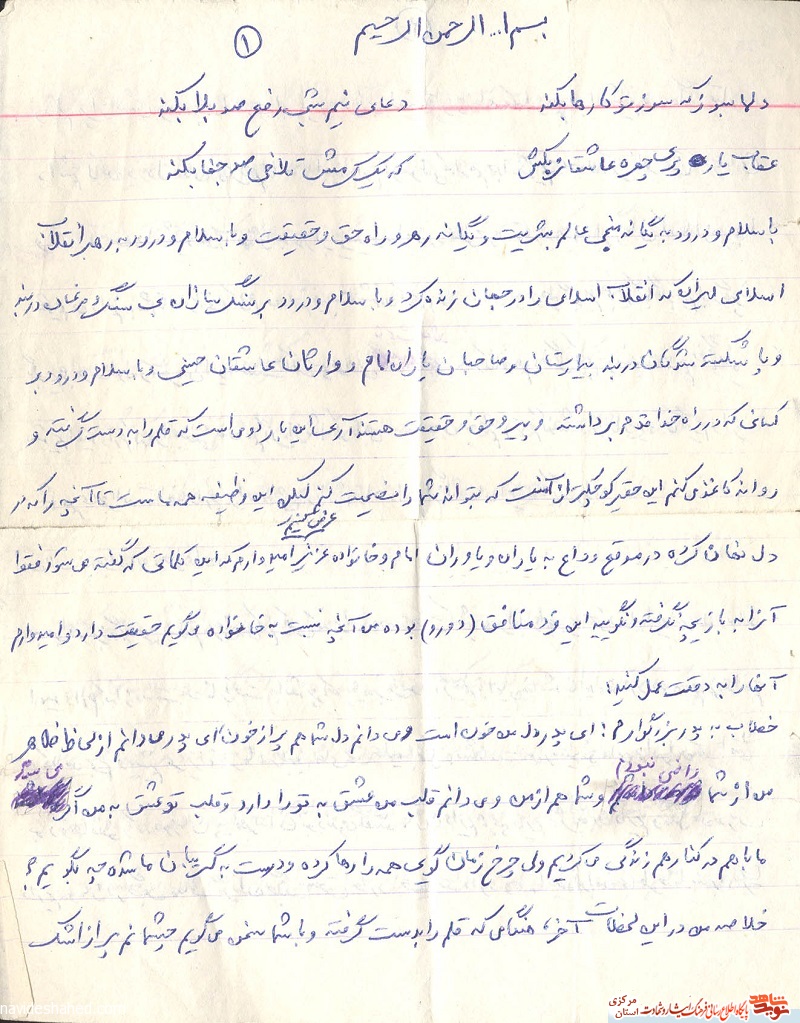 بسم ا... الرحمن الرحیم
۱
دلا بسوز که سوز تو کارها بکند دعای نیم شبی رفع صد بلا بکند
عتاب یار پری چهره عاشقانه بکش که یک کرشمه تلافی صد جفا بکند
با سلام و درود به یگانه منجی عالم بشریت و یگانه رهرو راه حق و حقیقت و با سلام و درود به رهبر انقلاب
اسلامی ایران که انقلاب اسلامی را در جهان زنده کرد و با سلام و درود بر سنگربانان بی سنگر و مرغان در بند
و پا شکسته شدگان در بند بیمارستان و صاحبان یاران امام و وارثان عاشقان حسینی و با سلام و درود بر
کسانی که در راه خدا قدم برداشته و پیرو حق و حقیقت هستند آری این بار دومی است که قلم را به دست گرفته و
روانه کاغذ می کنم این حقیر کوچکتر از آنست که بتواند شما را نصیحت کند لیکن این وظیفه همه ماست تا آنچه را که در
دل نهان کرده در موقع وداع به یاران و یاوران امام و خانواده عزیز عرض کنیم امیدوارم که این کلماتی که گفته می شود فقط
آنرا به بازیچه نگرفته و نگویید این فرد منافق (دورو) بوده من آنچه نسبت به خانواده می گویم حقیقت دارد و امیدوارم
آنها را به دقت عمل کنید:
خطاب به پدر بزرگوارم: ای پدر دل من خون است و می دانم دل شما هم پر از خون، ای پدر می دانم از لحاظ ظاهر
من از شما راضی نبودم و شما هم از من و می دانم قلب من عشق به تو را دارد و قلب تو عشق به من اگر می شد
ما با هم در کنار هم زندگی می کردیم ولی چرخ زمان گویی همه را رها کرده و دست به گریبان ما شده چه بگویم؟
خلاصه من در این لحظات آخر، هنگامی که قلم را بدست گرفته و با شما سخن می گویم چشمانم پر از اشک
navideshahed.com
نوید شاهد
پایگاه اطلاع رسانی فرهنگ ایثار و شهادت
استان مرکزی